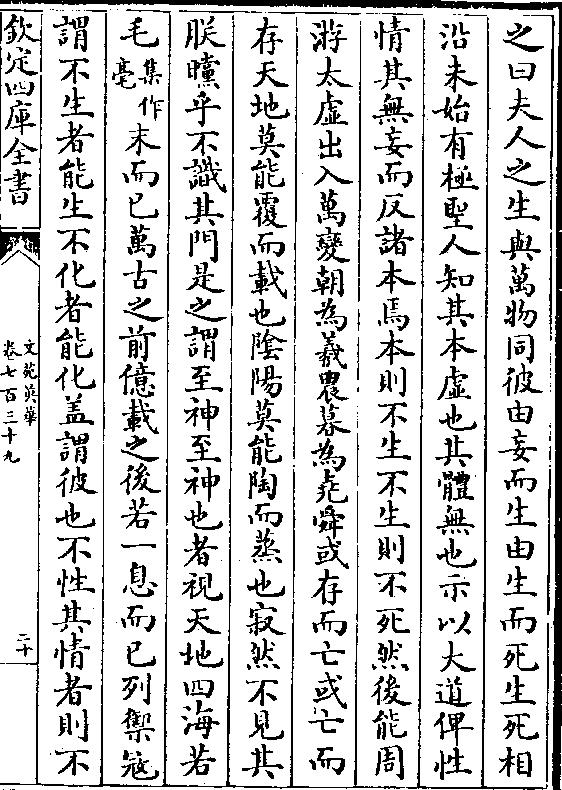 之曰夫人之生與萬物同彼由妄而生由生而死生死相
沿未始有極聖人知其本虛也其體無也示以大道俾性
情其無妄而反諸本焉本則不生不生則不死然後能周
游太虛出入萬變朝為羲農暮為堯舜或存而亡或亡而
存天地莫能覆而載也陰陽莫能陶而蒸也寂然不見其
朕曭乎不識其門是之謂至神至神也者視天地四海若
毛集作毫末而已萬古之前億載之後若一息而已列禦寇
謂不生者能生不化者能化蓋謂彼也不性其情者則不
欽定四庫全書
文苑英華
卷七百三十九
二十